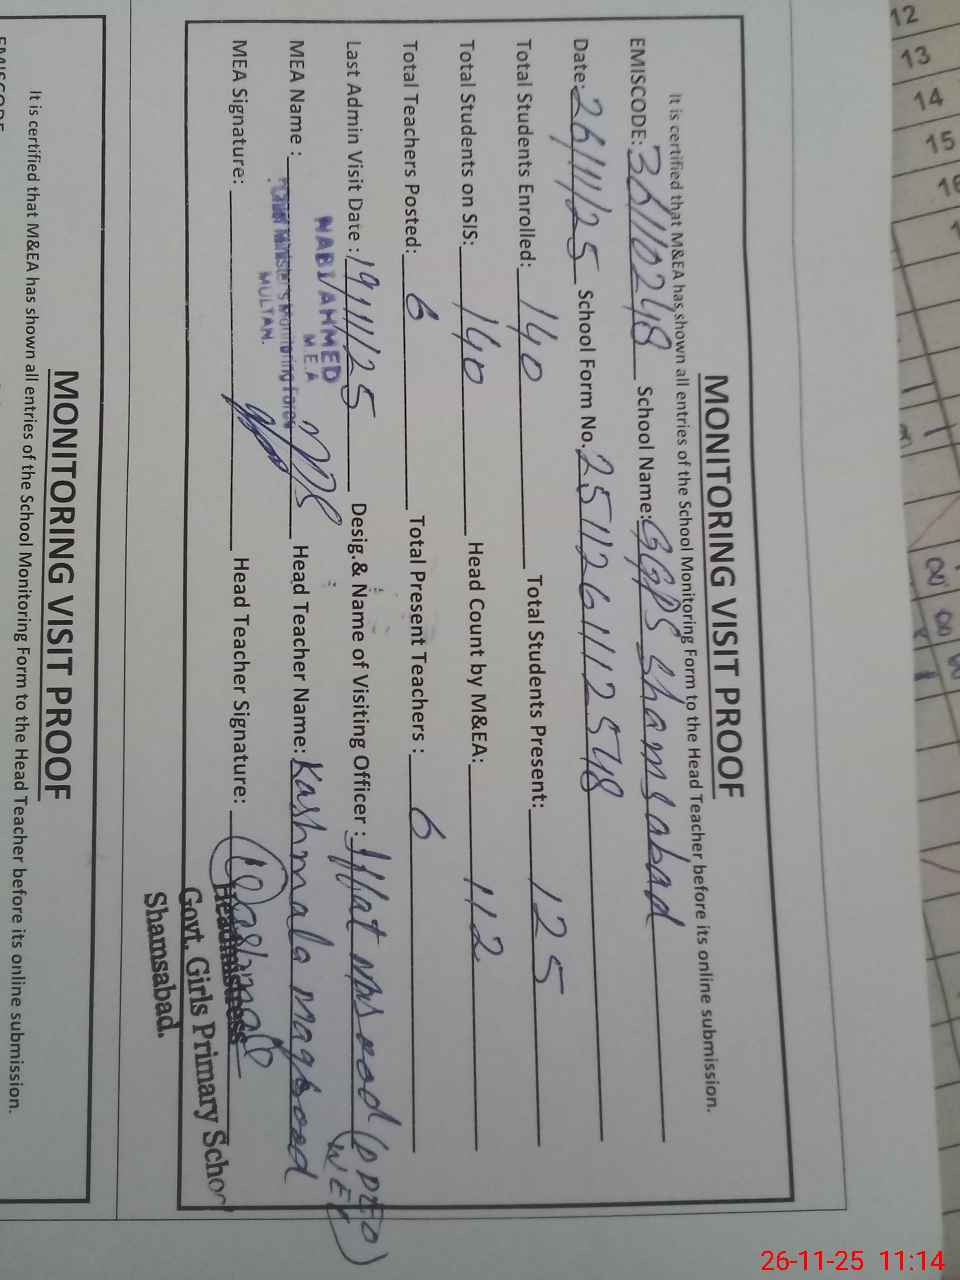 MONITORING VISIT PROOF
It is certified that M&EA has shown all entries of the School Monitoring Form to the Head Teacher before its online submission.
EMISCODE: 36110248 School Name: GGPS Shamsabad
Date: 26/11/25 School Form No. 2511261112548
Total Students Enrolled: 140 Total Students Present: 125
Total Students on SIS: 140 Head Count by M&EA: 112
Total Teachers Posted: 6 Total Present Teachers : 6
Last Admin Visit Date : 19/11/25 Desig.& Name of Visiting Officer : Iffat (DDEO
W EE)
NABI AHMED
M E A
MEA Name : Head Teacher Name: Kashmala maqsood
Chief Minister's Monitoring Force
MULTAN.
MEA Signature: Head Teacher Signature:
Headmistress
Govt. Girls Primary School
Shamsabad.
MONITORING VISIT PROOF
It is certified that M&EA has shown all entries of the School Monitoring Form to the Head Teacher before its online submission.
12
13
14
15
26-11-25 11:14